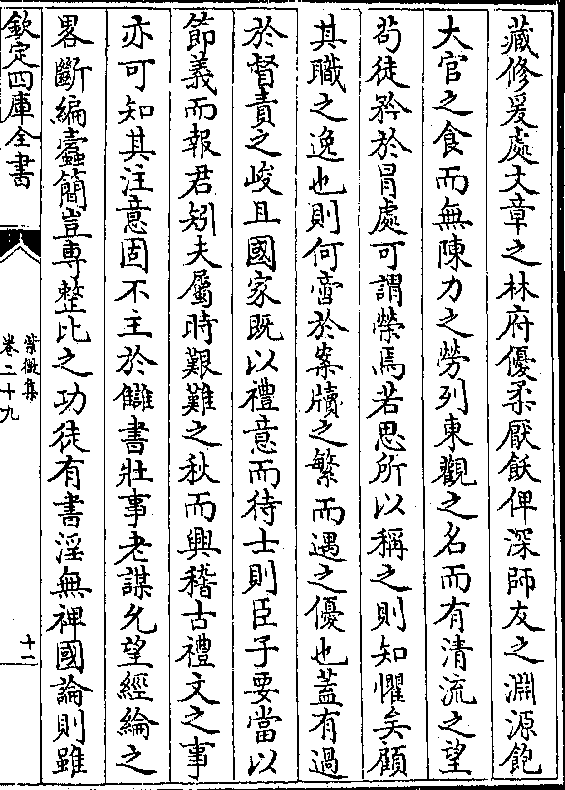 藏修爰處文章之林府優柔厭飫俾深師友之淵源飽
大官之食而無陳力之勞列東觀之名而有清流之望
苟徒矜於冒處可謂榮焉若思所以稱之則知懼矣顧
其職之逸也則何啻於案牘之繁而遇之優也蓋有過
於督責之峻且國家既以禮意而待士則臣子要當以
節義而報君矧夫屬時艱難之秋而興稽古禮文之事
亦可知其注意固不主於讎書壯事老謀允望經綸之
畧斷編蠹簡豈專整比之功徒有書淫無裨國論則雖
欽定四庫全書
紫微集
卷二十九
十二